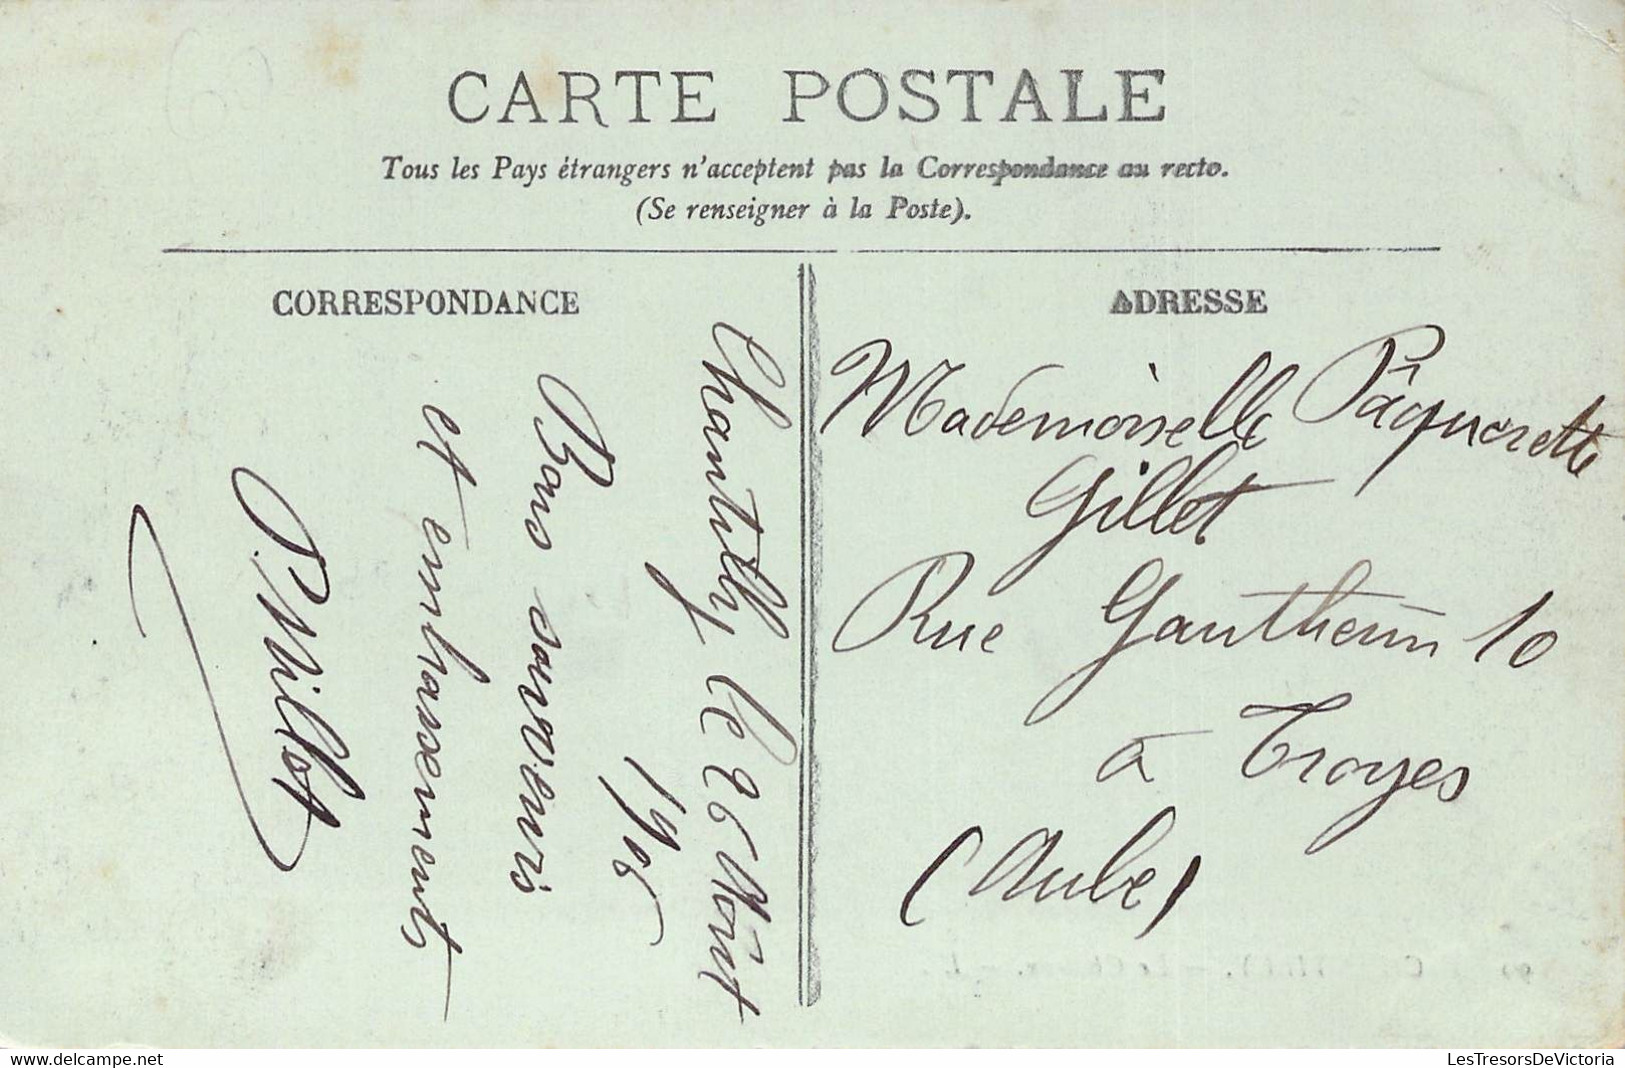 CARTE POSTALE
Tous les Pays étrangers n'acceptent pas la Correspondance au recto.
(Se renseigner à la Poste).
CORRESPONDANCE
Chantilly, le 26 Août
1906
Bons souvenirs
et embrassements
P. Millot
ADRESSE
Mademoiselle Pâquerette
Gillet
Rue Gautherin 10
à Troyes
(Aube)
www.delcampe.net
LesTresorsDeVictoria